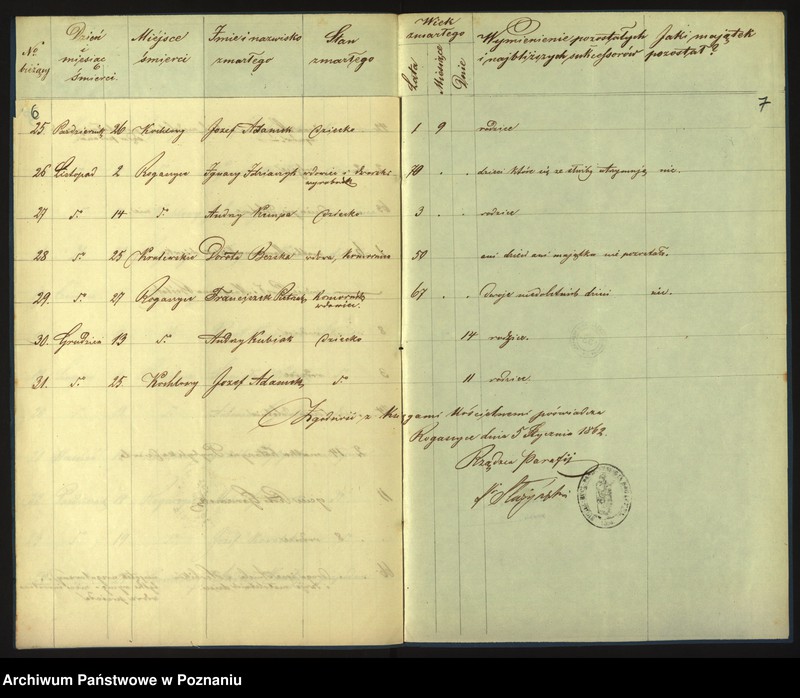 No bieżący Dzień i miesiąc śmierci. Miejsce śmierci Imie i nazwisko zmarłego Stan zmarłego Wiek zmarłego Lata Miesiące Dnie Wymienienie pozostałych i najbliższych sukcessorów Jaki majątek pozostał?
6 7
25. Październik 26 Kochlowy Jozef Adamek dziecko 1 9 rodzice
26 Listopad 2 Rogaszyce Ignacy wdowiec i dworski wyrobnik 70 . . dzieci które się ze służby utrzymują nie.
27 5. 14 5. Andrzy Kempa dziecko 3 . rodzice
28 5. 25 Dorota wdowa, komornica 50 ani dzieci ani majątku nie pozostało.
29. 5. 27 Rogaszyce Franciszek komornik wdowiec. 67 . . dwoje niedoletnich dzieci nie.
30. Grudnia 13 5. Andrzy Kubiak dziecko 14 rodzice.
31. 5. 25 Kochlowy Jozef Adamek, 5. 11 rodzice.
Zgodność z Księgami Kościelnemi poświadcza
Rogaszyce dnia 5 Stycznia 1862.
Rządca Parafii
Archiwum Państwowe w Poznaniu